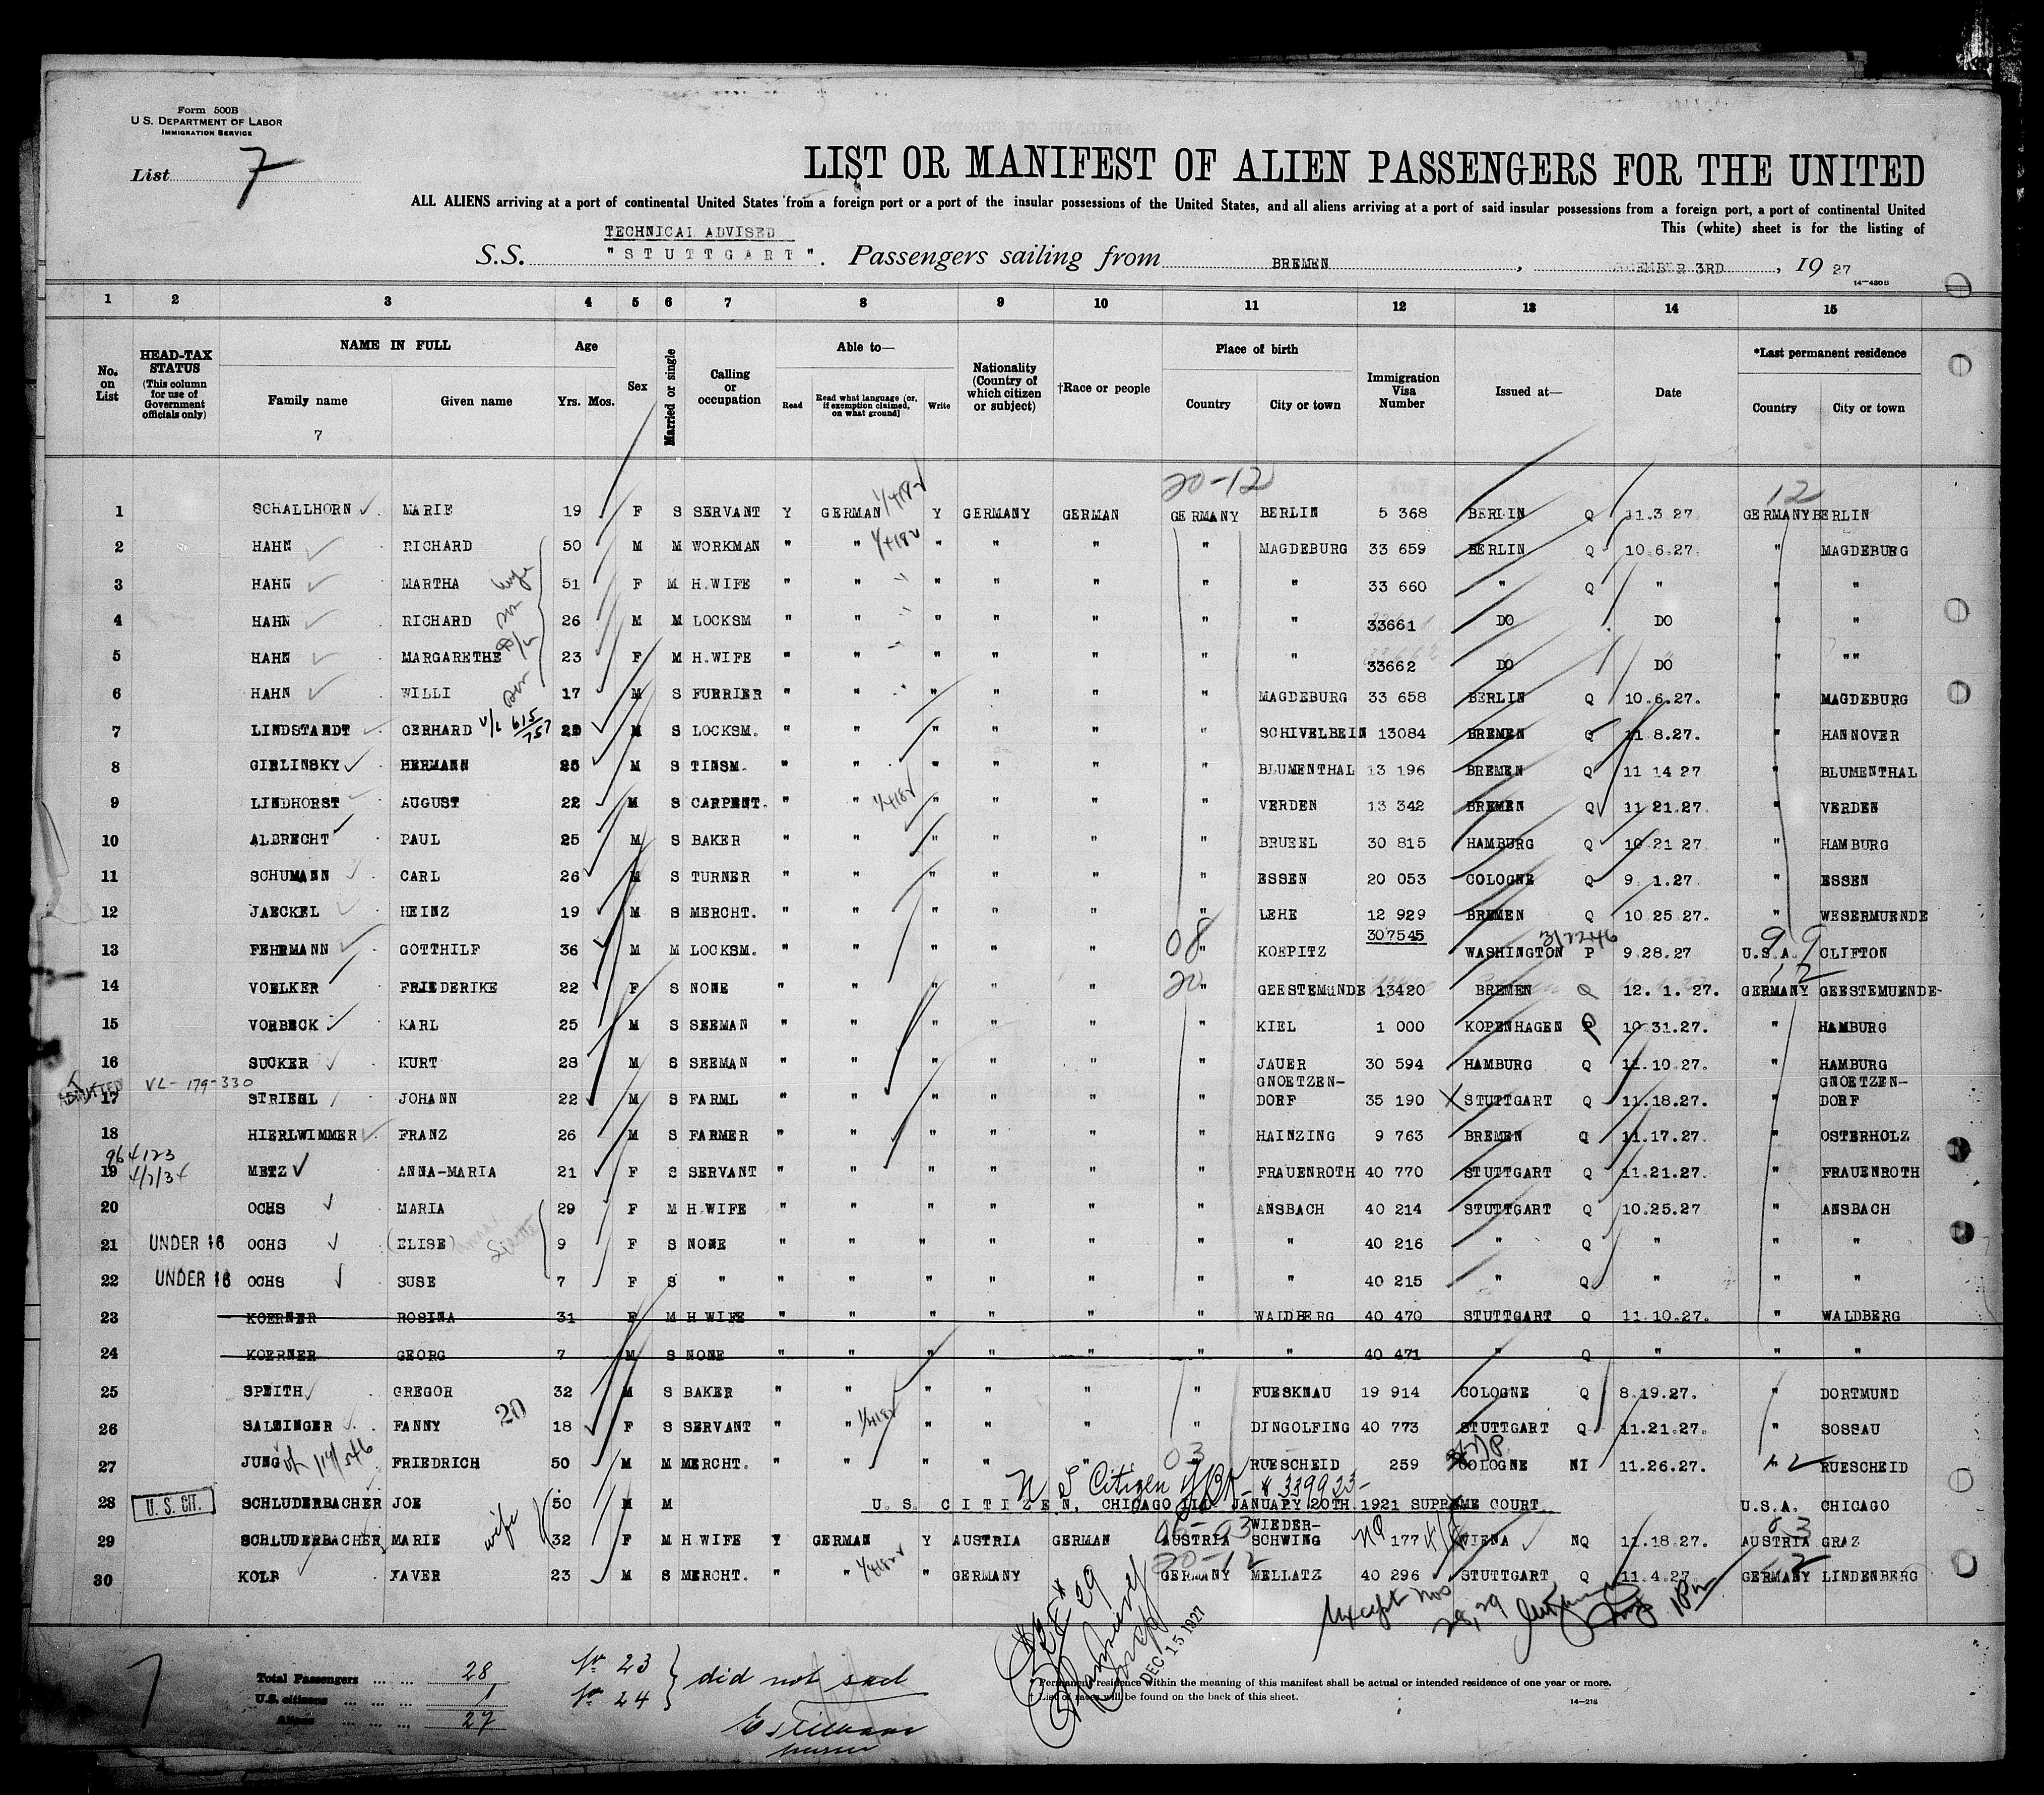 Form 500B
U.S. DEPARTMENT OF LABOR
IMMIGRATION SERVICE
List 7
LIST OR MANIFEST OF ALIEN PASSENGERS FOR THE UNITED
ALL ALIENS arriving at a port of continental United States from a foreign port or a port of the insular possessions of the United States, and all aliens arriving at a port of said insular possessions from a foreign port, a port of continental United
This (white) sheet is for the listing of
TECHNICAL ADVISED
S.S. "STUTTGART". Passengers sailing from BREMEN, DECEMBER 3RD, 1927
14-480B
1 2 3 4 5 6 7 8 9 10 11 12 13 14 15
No. on List
HEAD-TAX STATUS (This column for use of Government officials only)
NAME IN FULL
Family name
Given name
7
Age
Yrs. Mos.
Sex
Married or single
Calling or occupation
Able to—
Read
Read what language [or, if exemption claimed, on what ground]
Write
Nationality (Country of which citizen or subject)
†Race or people
Place of birth
Country
City or town
Immigration Visa Number
Issued at—
Date
*Last permanent residence
Country
City or town
20-12 12
1 SCHALLHORN MARIE 19 F S SERVANT Y GERMAN Y GERMANY GERMAN GERMANY BERLIN 5 368 BERLIN Q 11.3 27 GERMANY BERLIN
2 HAHN RICHARD 50 M M WORKMAN " " " " " " MAGDEBURG 33 659 BERLIN Q 10.6.27. " MAGDEBURG
3 HAHN MARTHA wife 51 F M H.WIFE " " " " " " " 33 660 " Q " " "
4 HAHN RICHARD son 26 M M LOCKSM " " " " " " " 33661 DO DO " "
5 HAHN MARGARETHE D/L 23 F M H.WIFE " " " " " " " 33662 DO DO " ""
6 HAHN WILLI son 17 M S FURRIER " " " " " " MAGDEBURG 33 658 BERLIN Q 10.6.27. " MAGDEBURG
7 LINDSTANDT GERHARD V/L 615/757 M S LOCKSM. " " " " " " SCHIVELBEIN 13084 BREMEN Q 11 8.27. " HANNOVER
8 GIRLINSKY HERMANN 25 M S TINSM. " " " " " " BLUMENTHAL 13 196 BREMEN Q 11 14 27 " BLUMENTHAL
9 LINDHORST AUGUST 22 M S CARPENT. " " " " " " VERDEN 13 342 BREMEN Q 11 21.27. " VERDEN
10 ALBRECHT PAUL 25 M S BAKER " " " " " " BRUEEL 30 815 HAMBURG Q 10 21 27 " HAMBURG
11 SCHUMANN CARL 26 M S TURNER " " " " " " ESSEN 20 053 COLOGNE Q 9 1.27. " ESSEN
12 JAECKEL HEINZ 19 M S MERCHT. " " " " " " LEHE 12 929 BREMEN Q 10 25 27. " WESERMUENDE
307545 08 9 9
13 FEHRMANN GOTTHILF 36 M M LOCKSM. " " " " " " KOEPITZ WASHINGTON P 9.28.27 U.S.A. CLIFTON
20 12
14 VOELKER FRIEDERIKE 22 F S NONE " " " " " " GEESTEMUNDE 13420 BREMEN Q 12. 1. 27. GERMANY GEESTEMUENDE-
15 VORBECK KARL 25 M S SEEMAN " " " " " " KIEL 1 000 KOPENHAGEN P 10 31.27. " HAMBURG
16 SUCKER KURT 28 M S SEEMAN " " " " " " JAUER 30 594 HAMBURG Q 11.10.27. " HAMBURG
ADMITTED VL-179-330 GNOETZEN- GNOETZEN-
17 STRIEGL JOHANN 22 M S FARML " " " " " " DORF 35 190 X STUTTGART Q 11.18.27. " DORF
18 HIERLWIMMER FRANZ 26 M S FARMER " " " " " " HAINZING 9 763 BREMEN Q 11.17.27. " OSTERHOLZ
964123
19 METZ ANNA-MARIA 21 F S SERVANT " " " " " " FRAUENROTH 40 770 STUTTGART Q 11.21.27. " FRAUENROTH
20 OCHS MARIA 29 F M H.WIFE " " " " " " ANSBACH 40 214 STUTTGART Q 10.25.27 " ANSBACH
21 UNDER 16 OCHS (ELISE) 9 F S NONE " " " " " " " 40 216 " Q " " "
22 UNDER 16 OCHS SUSE 7 F S " " " " " " " " 40 215 " Q " " "
23 KOERNER ROSINA 31 F M H WIFE " " " " " " WALDBERG 40 470 STUTTGART Q 11.10.27. " WALDBERG
24 KOERNER GEORG 7 M S NONE " " " " " " " 40 471 " Q " " "
25 SPEITH GREGOR 32 M S BAKER " " " " " " FUESKNAU 19 914 COLOGNE Q 8.19.27. " DORTMUND
26 SALZINGER FANNY 20 18 F S SERVANT " " " " " " DINGOLFING 40 773 STUTTGART Q 11.21.27. " SOSSAU
03
27 JUNG FRIEDRICH 50 M M MERCHT. " " " " " RUESCHEID 259 COLOGNE NI 11.26.27. " RUESCHEID
U S Citizen # 339933-
28 U.S. CIT. SCHLUDERBACHER JOE 50 M M U.S. CITIZEN, CHICAGO ILL. JANUARY 20TH 1921 SUPREME COURT U.S.A. CHICAGO
WIEDER-
29 SCHLUDERBACHER, MARIE wife 32 F M H WIFE Y GERMAN Y AUSTRIA GERMAN AUSTRIA SCHWING NQ 177 VIENA NQ 11.18.27. AUSTRIA GRAZ
20-12
30 KOLB XAVER 23 M S MERCHT. " " " GERMANY GERMANY MELLATZ 40 296 STUTTGART Q 11.4.27. GERMANY LINDENBERG
Except nos
28,29
DEC 15 1927
7
Total Passengers 28
U.S. citizens 1
Aliens 27
No 23
No 24 } did not sail
* Permanent residence within the meaning of this manifest shall be actual or intended residence of one year or more.
† List of races will be found on the back of this sheet.
14-218